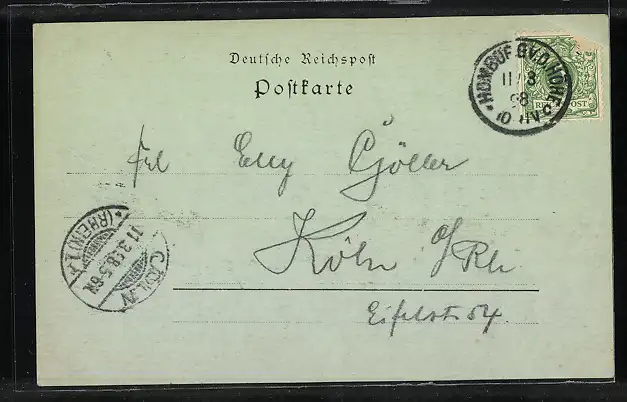 Deutsche Reichspost
Postkarte
HOMBURG V.D. HÖHE
11/3
98
REICHSPOST
Frl Elly Göller
Köln a/Rh
Eifelstr 54.
CÖLN
11.3.98.5-6N.
* (RHEIN) 1.